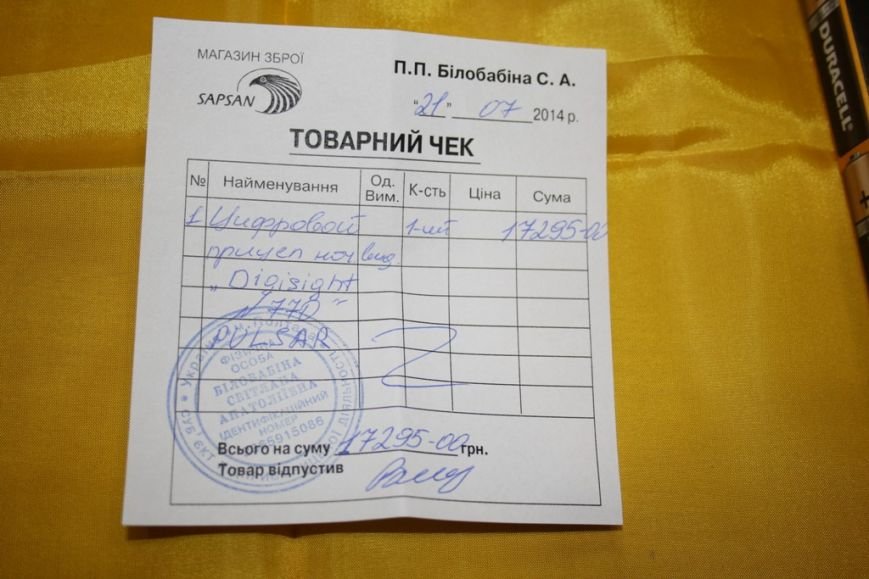 МАГАЗИН ЗБРОЇ
SAPSAN
П.П. Білобабіна С. А.
"21" 07 2014 р.
ТОВАРНИЙ ЧЕК
№ Найменування Од. Вим. К-сть Ціна Сума
1 Цифровой 1-шт 17295-00
прицел ноч вид
„Digisight
770"
PULSAR
Україна м. Полтава
ФІЗИЧНА
ОСОБА
БІЛОБАБІНА
СВІТЛАНА
АНАТОЛІЇВНА
ІДЕНТИФІКАЦІЙНИЙ
НОМЕР
65915086
СУБ'ЄКТ ДІЯЛЬНОСТІ
Всього на суму 17295-00 грн.
Товар відпустив
DURACELL
+